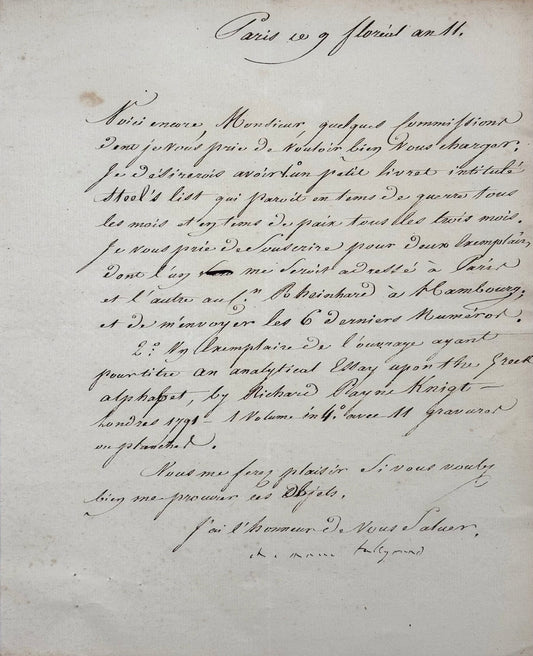 Paris ce 9 floréal an 11.
Voici encore Monsieur quelques Commissions
dont je vous prie de vouloir bien vous charger.
Je désirerois avoir 1.º un petit livret intitulé
Steel's list qui paroit en tems de guerre tous
les mois et en tems de paix tous les trois mois.
Je vous prie de Souscrire pour deux Exemplair,
dont l'un me Seroit adressé à Paris
et l'autre au C.en Rheinhard à Hambourg,
et de m'envoyer les 6 derniers Numéros.
2.º Un Exemplaire de l'ouvrage ayant
pour titre an analytical Essay upon the Greek
alphabet, by Richard Payne Knigt —
Londres 1791 - 1 Volume in 4.º avec 11 gravures
ou planches.
Vous me ferez plaisir Si vous voulez
bien me procurer ces Objets.
J'ai l'honneur de Vous Saluer.
ch. mau talleyrand